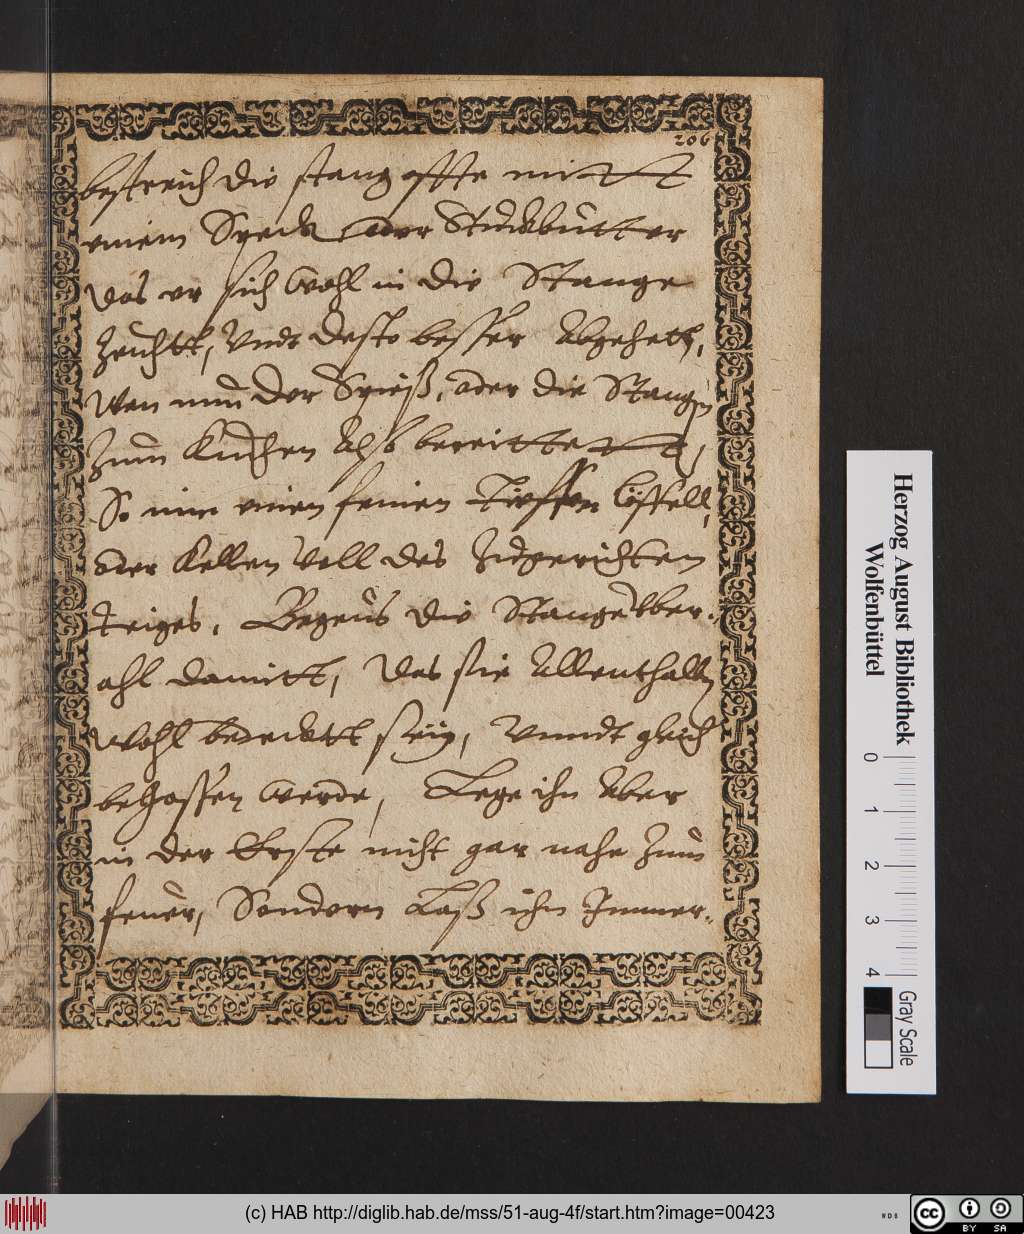 206
bestreich die stang offte mitt
einem Speck oder Stückbutter
das er sich wohl in die Stange
Zeucht, Undt desto besser Abgehett,
Wen nun der Spieß, oder die Stangen
Zum Kuchen Also bereittett,
So nim einen feinen Tieffen löffell,
oder Kellen Voll des Zugerichten
teiges, Begeus die Stange über-
ahl damitt, Das sie Allenthalben
Wohl bedecktt seÿ, Vnndt gleich
behossen werde, Lege ihn Aber
in der Erste nicht gar nahe Zum
feuer, Sondern Laß ihn Immer-
Herzog August Bibliothek
Wolfenbüttel
0 1 2 3 4
Gray Scale
(c) HAB http://diglib.hab.de/mss/51-aug-4f/start.htm?image=00423
WDB
cc BY SA